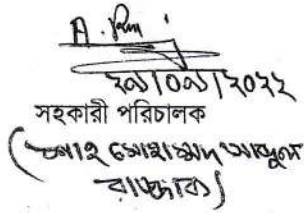 ২৯/০৯/২০২২
সহকারী পরিচালক
(শাহ মোহাম্মদ আব্দুল
রাজ্জাক)